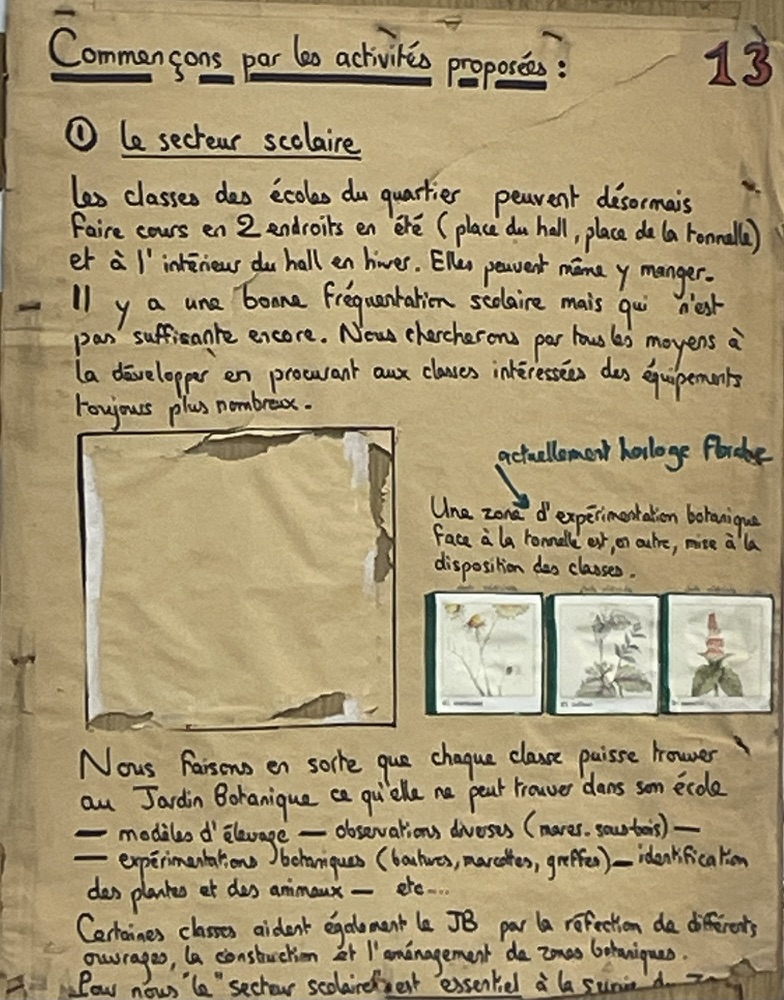 Commençons par les activités proposées :
13
① Le secteur scolaire
Les classes des écoles du quartier peuvent désormais
faire cours en 2 endroits en été (place du hall, place de la tonnelle)
et à l'intérieur du hall en hiver. Elles peuvent même y manger.
Il y a une bonne fréquentation scolaire mais qui n'est
pas suffisante encore. Nous chercherons par tous les moyens à
la développer en procurant aux classes intéressées des équipements
toujours plus nombreux.
actuellement horloge florale
Une zone d'expérimentation botanique
face à la tonnelle est, en outre, mise à la
disposition des classes.
Nous faisons en sorte que chaque classe puisse trouver
au Jardin Botanique ce qu'elle ne peut trouver dans son école
— modèles d'élevage — observations diverses (mares. sous-bois) —
— expérimentations botaniques (boutures, marcottes, greffes) — identification
des plantes et des animaux — etc...
Certaines classes aident également le JB par la réfection de différents
ouvrages, la construction et l'aménagement de zones botaniques.
Pour nous "le" secteur scolaire" est essentiel à la survie du